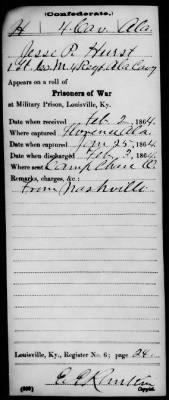 (Confederate.)
H 4 Cav. Ala.
Jesse P. Hurst
Appears on a roll of
Prisoners of War
at Military Prison, Louisville, Ky.
Date when received Feb. 2, 1864.
Where captured Florence Ala.
Date when captured Jan 25, 1864.
Date when discharged Feb. 3, 1864.
Where sent Camp Chase O.
Remarks, charges, &c.:
from Nashville
Louisville, Ky., Register No. 6; page 24
Copyist.